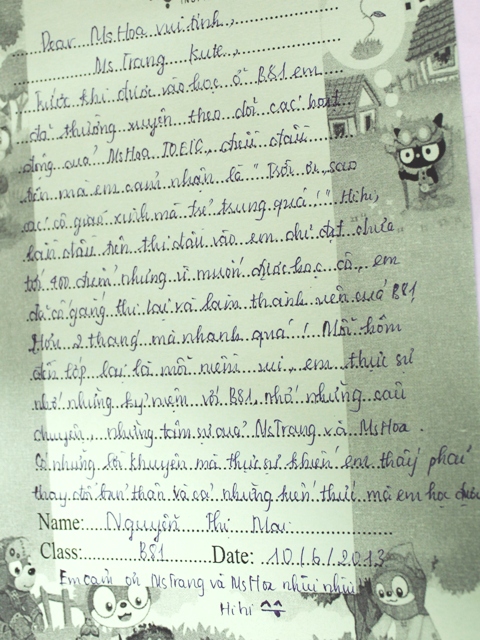 Dear Ms Hoa vui tính,
Ms Trang kute,
Trước khi được vào học ở B81 em
đã thường xuyên theo dõi các hoạt
động của Ms Hoa TOEIC, điều đầu
tiên mà em cảm nhận là "Trời ơi, sao
các cô giáo xinh mà trẻ trung quá!" Hihi,
lần đầu tiên thi đầu vào em chỉ đạt chưa
tới 400 điểm nhưng vì muốn được học cô, em
đã cố gắng thi lại và làm thành viên của B81
Hơn 2 tháng mà nhanh quá! Mỗi hôm
đến lớp lại là mỗi niềm vui, em thực sự
nhớ những kỷ niệm với B81, nhớ những câu
chuyện, những tâm sự của Ms Trang và Ms Hoa.
Có những lời khuyên mà thực sự khiến em thấy phải
thay đổi bản thân và cả những kiến thức mà em học được
Name: Nguyễn Thị Mai
Class: B81 Date: 10/6/2013
Em cảm ơn Ms Trang và Ms Hoa nhìu nhìu
Hihi ^^